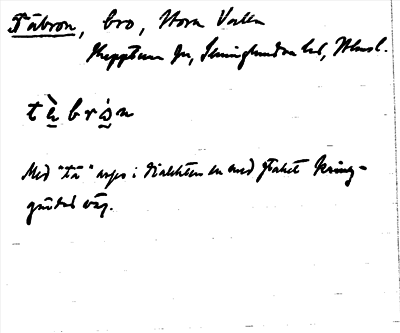 Täbron, bro, Norra Valla
Skepptuna sn, Seminghundra hd, Uppl.
tä̀brṓn
Med "tä" avses i dialekten en med staket kring-
gärdad väg.